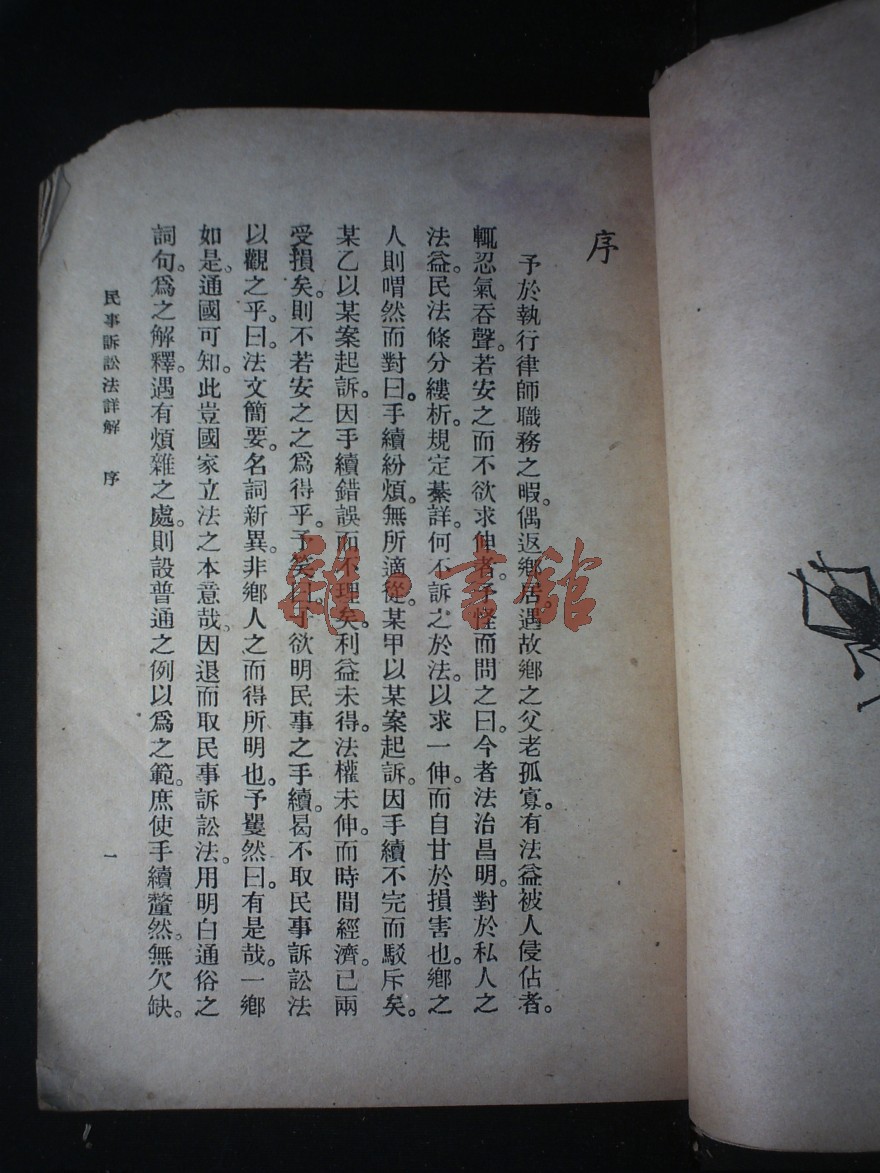 序
予於執行律師職務之暇。偶返鄕居。遇故鄕之父老孤寡。有法益被人侵佔者。
輒忍氣吞聲。若安之而不欲求伸者。予怪而問之曰。今者法治昌明。對於私人之
法益。民法條分縷析。規定綦詳。何不訴之於法。以求一伸。而自甘於損害也。鄕之
人則喟然而對曰。手續紛煩。無所適從。某甲以某案起訴。因手續不完而駁斥矣。
某乙以某案起訴。因手續錯誤而不理矣。利益未得。法權未伸。而時間經濟。已兩
受損矣。則不若安之之爲得乎。予笑曰。子欲明民事之手續。曷不取民事訴訟法
以觀之乎。曰。法文簡要。名詞新異。非鄕人之而得所明也。予矍然曰。有是哉。一鄕
如是。通國可知。此豈國家立法之本意哉。因退而取民事訴訟法。用明白通俗之
詞句。爲之解釋。遇有煩雜之處。則設普通之例以爲之範。庶使手續釐然。無欠缺。
民事訴訟法詳解 序 一
雜·書館